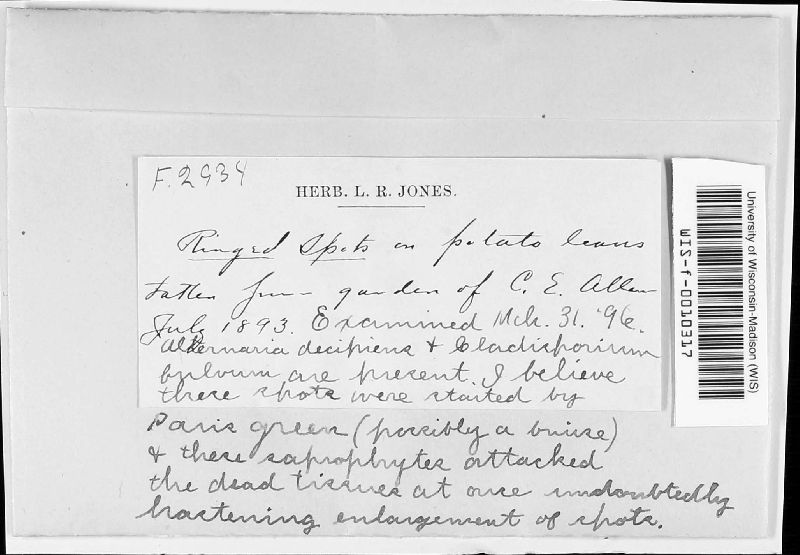 F.2934
HERB. L. R. JONES.
Ringed Spots on potato leaves
taken from garden of C. E. Allen
July 1893. Examined Mch. 31. '96.
Alternaria decipiens & Cladisporium
fulvum are present. I believe
these spots were started by
Paris green (possibly a bruise)
& these saprophytes attacked
the dead tissues at once undoubtedly
hastening enlargement of spots.
University of Wisconsin-Madison (WIS)
WIS-f-0010317